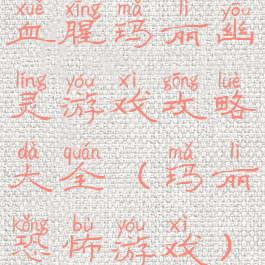 xuè xīng mǎ lì yōu
血腥玛丽幽
líng yóu xì gōng lüè
灵游戏攻略
dà quán (mǎ lì
大全(玛丽
kǒng bù yóu xì)
恐怖游戏)